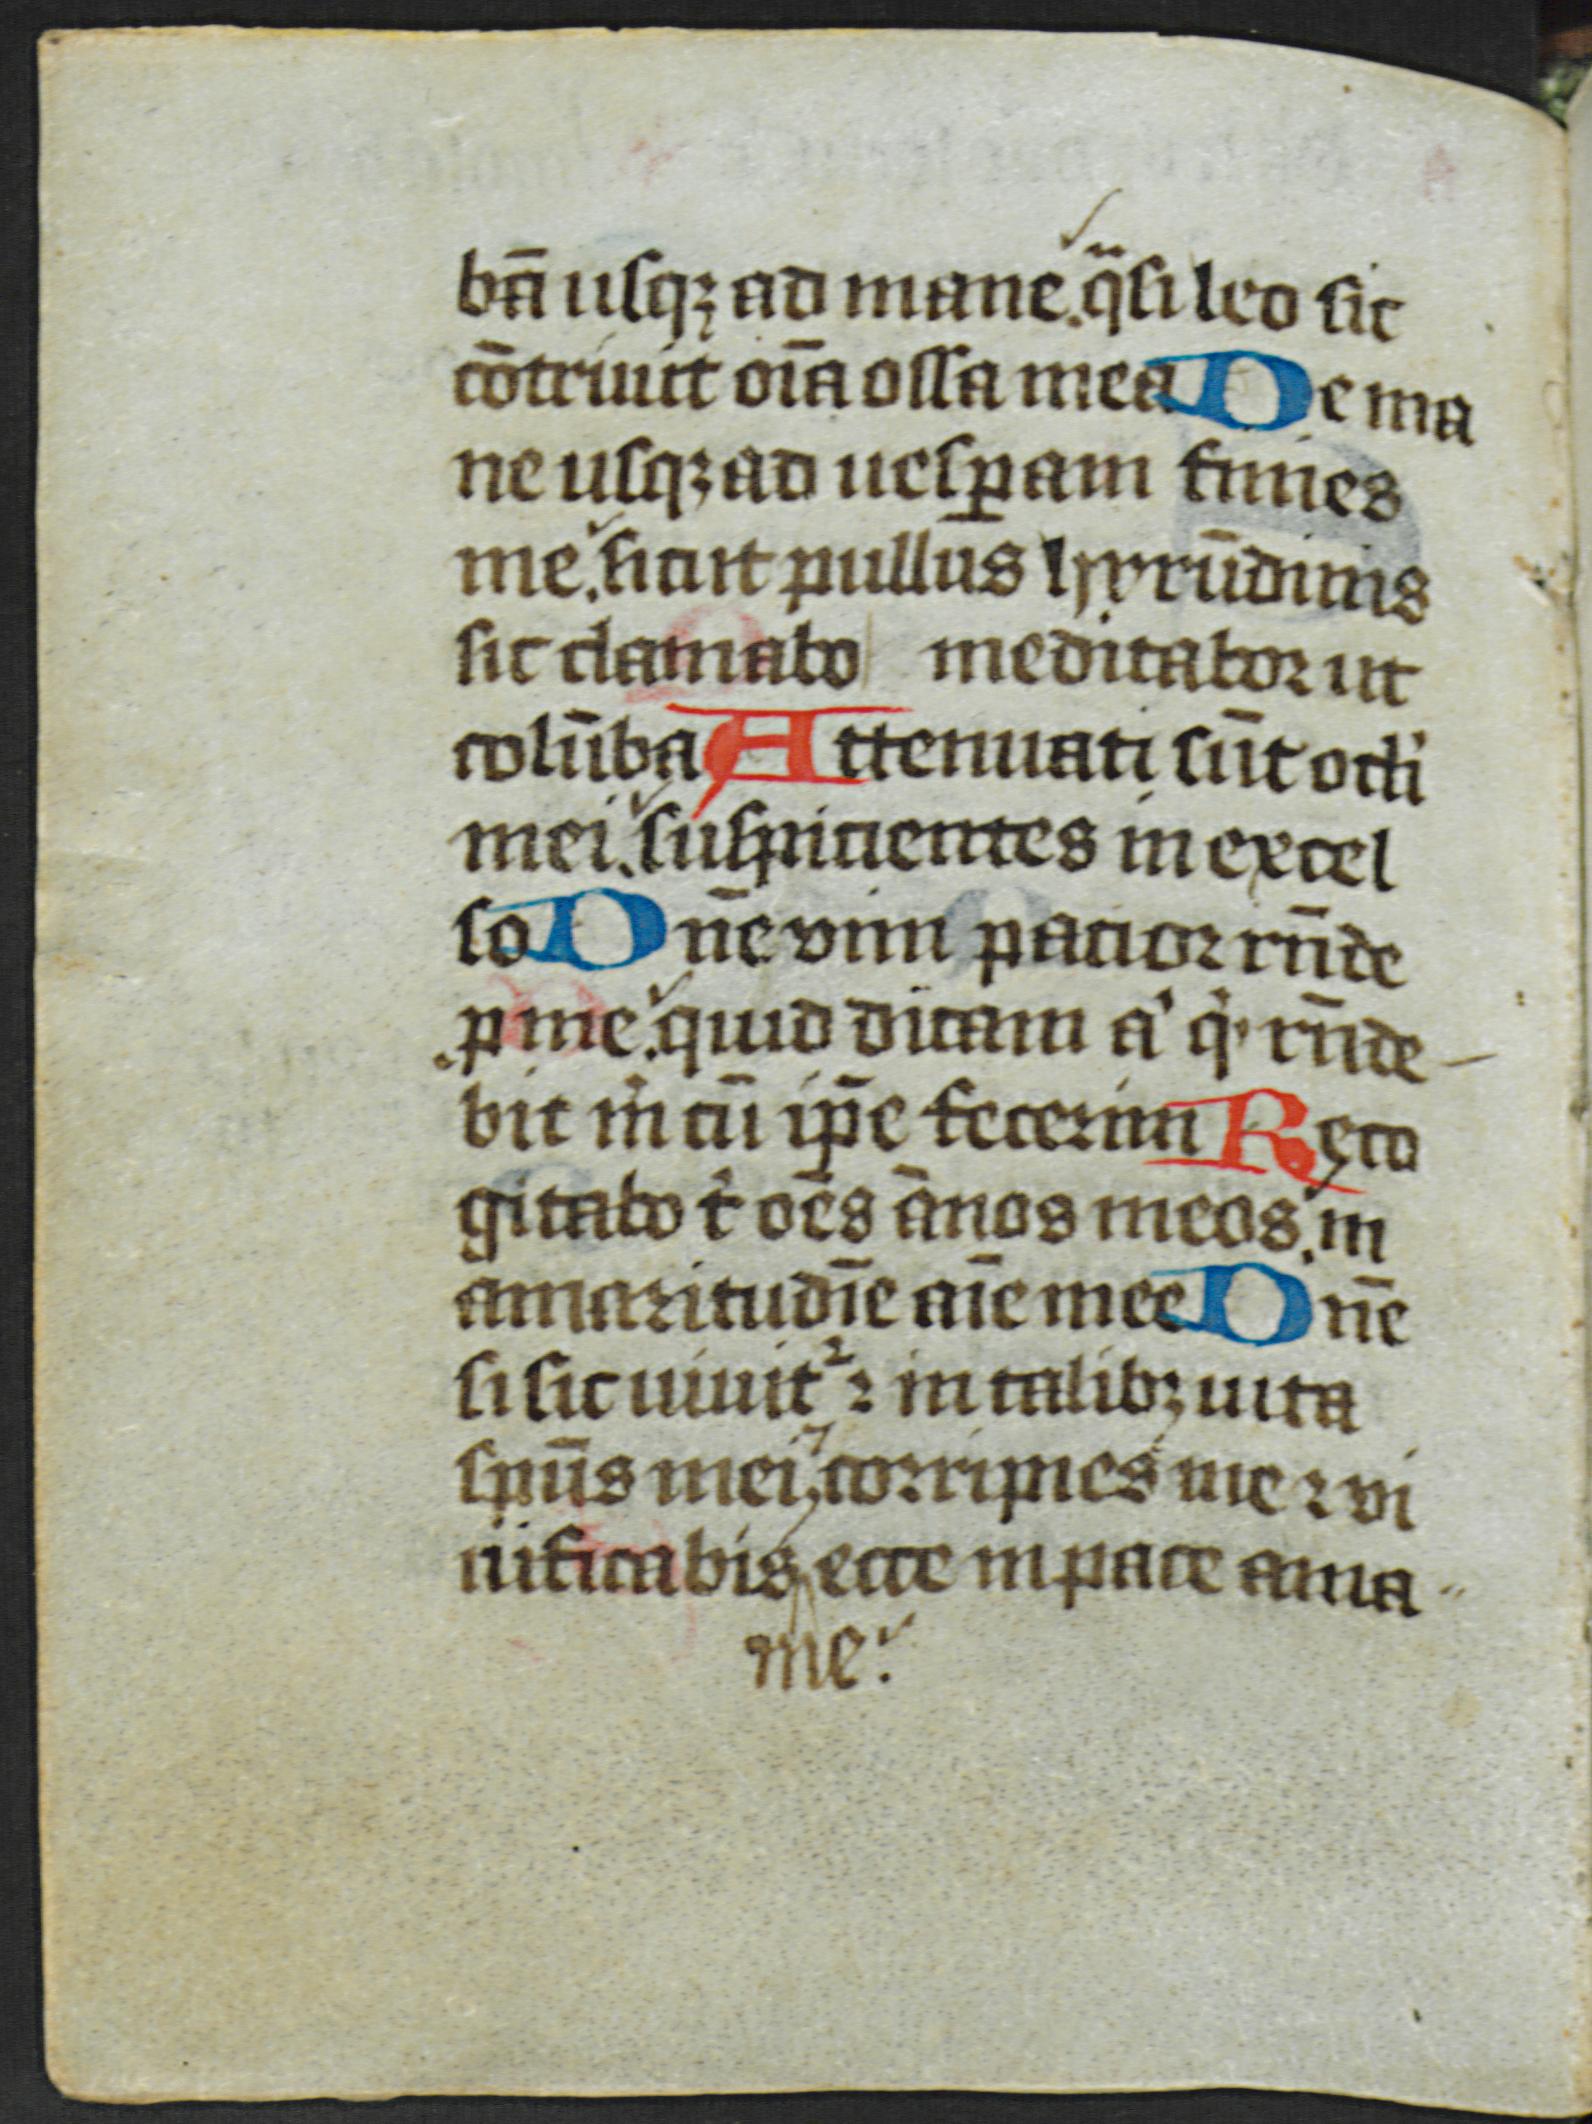 bā usqꝫ ad mane. q̈si leo sic
cōtriuit oīa ossa mea De ma
ne usqꝫ ad uesꝑam finies
me. sicut pullus hyrūdinis
sic clamabo meditabor ut
colūba Attenuati sūt ocli
mei. suspicientes in excel
so Dn̄e vim patior rn̄de
ꝓ me. quid dicam aͭ qͥ rn̄de
bit mͥ cū ip̄e fecerim Reco
gitabo tͥ oēs ānos meos. in
amaritudīe aīe mee Dn̄e
si sic uiuitᷣ ⁊ in talibꝫ uita
spūs mei, corripies me ⁊ vi
uificabis, ecce in pace ama
me.